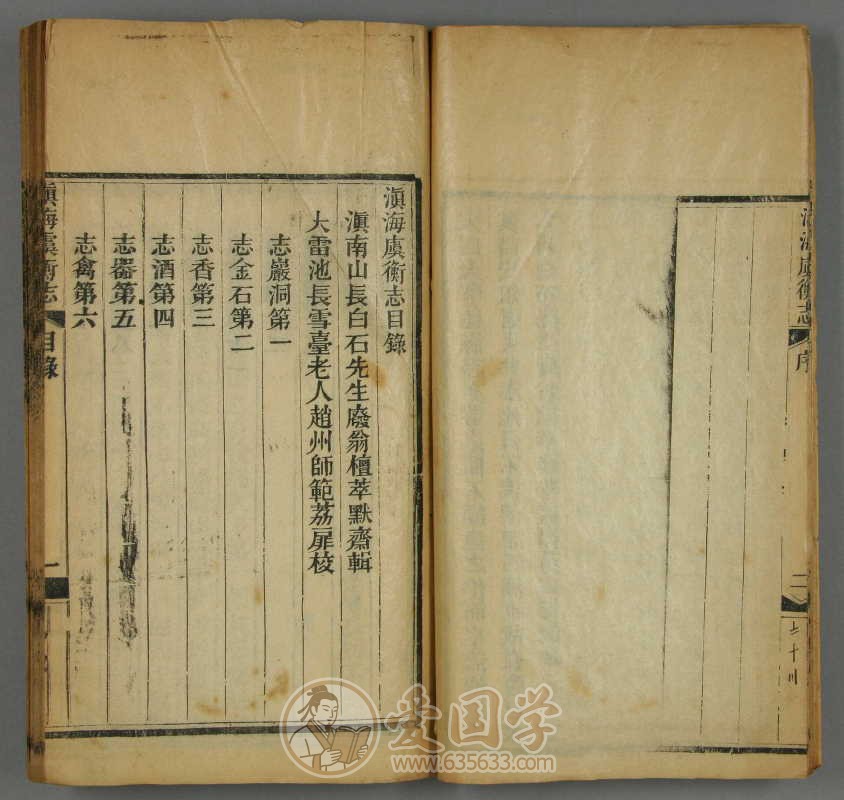 滇海虞衡志
序
二
滇海虞衡志目錄
滇南山長白石先生廢翁檀萃默齋輯
大雷池長雪臺老人趙州師範荔扉校
志巖洞第一
志金石第二
志香第三
志酒第四
志器第五
志禽第六
滇海虞衡志
目錄
一
爱国学
www.635633.com